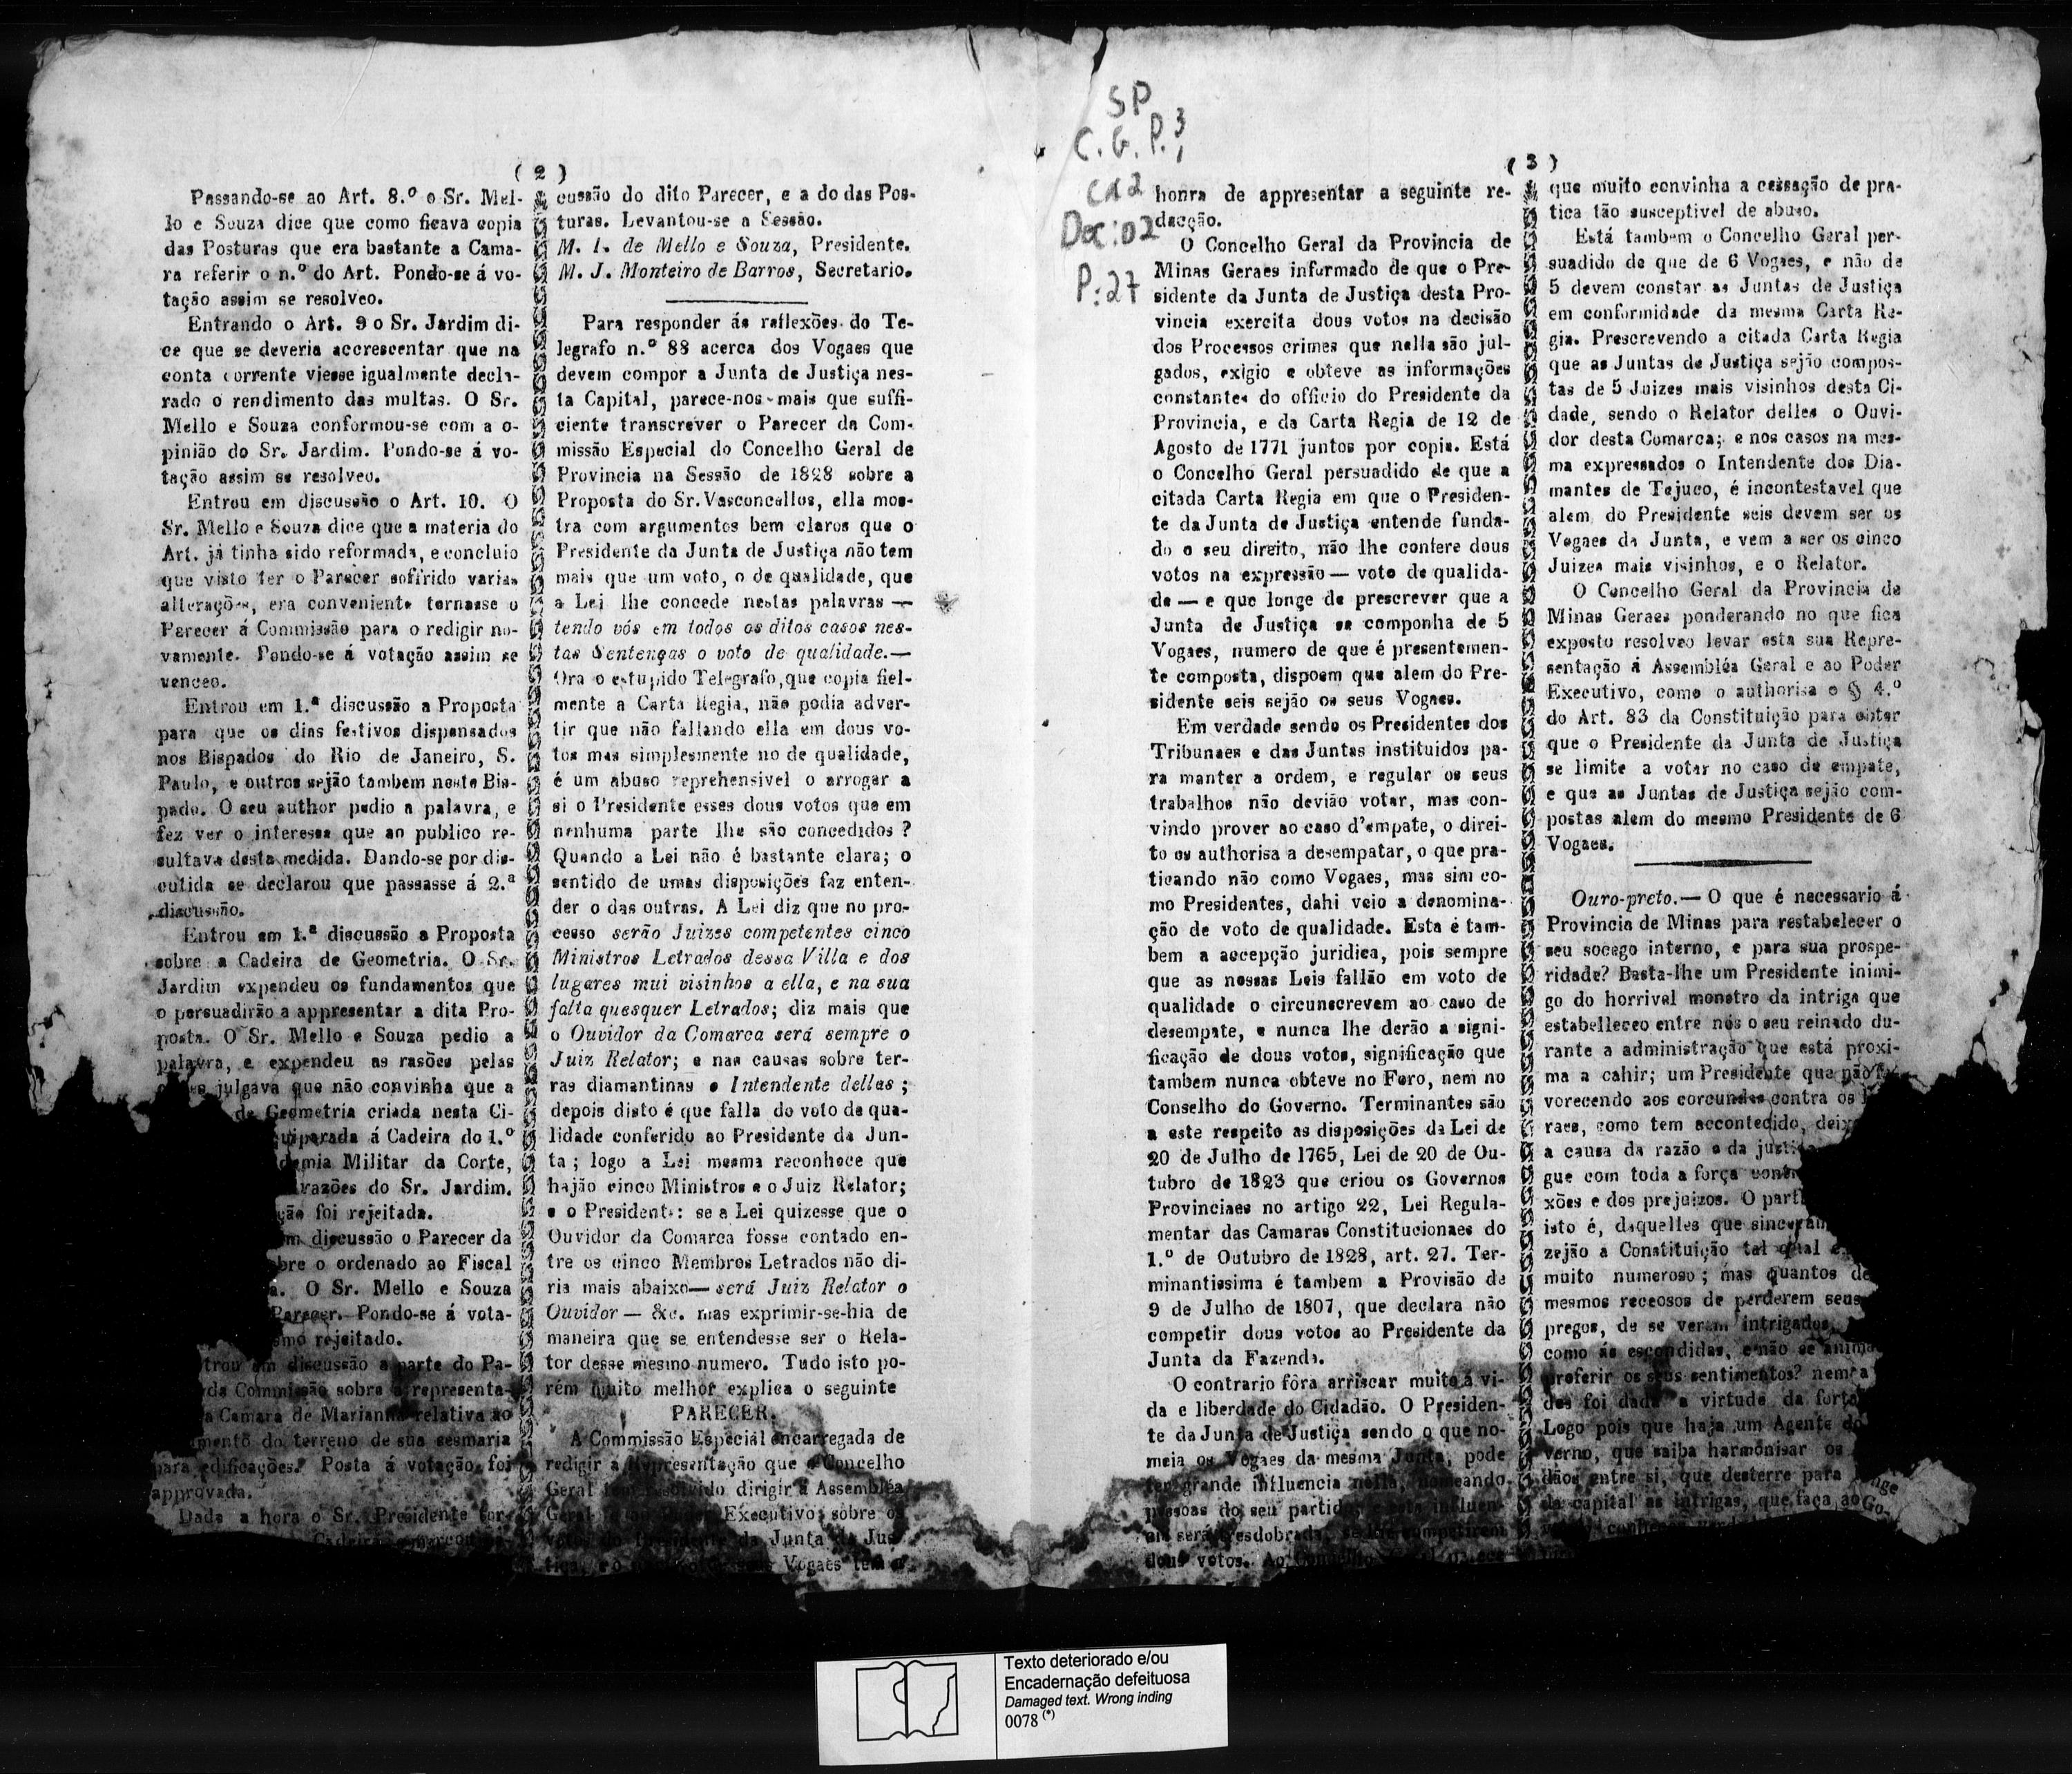 ( 2 )
Passando-se ao Art. 8.º o Sr. Mel-
lo e Souza dice que como ficava copia
das Posturas que era bastante a Cama-
ra referir o n.º do Art. Pondo-se á vo-
tação assim se resolveo.
Entrando o Art. 9 o Sr. Jardim di-
ce que se deveria accrescentar que na
conta corrente viesse igualmente decla-
rado o rendimento das multas. O Sr.
Mello e Souza conformou-se com a o-
pinião do Sr. Jardim. Pondo-se á vo-
tação assim se resolveo.
Entrou em discussão o Art. 10. O
Sr. Mello e Souza dice que a materia do
Art. já tinha sido reformada, e concluio
que visto ter o Parecer soffrido varias
alterações, era conveniente tornasse o
Parecer á Commissão para o redigir no-
vamente. Pondo-se á votação assim se
venceo.
Entrou em 1.ª discussão a Proposta
para que os dias festivos dispensados
nos Bispados do Rio de Janeiro, S.
Paulo, e outros sejão tambem neste Bis-
pado. O seu author pedio a palavra, e
fez ver o interesse que ao publico re-
sultava desta medida. Dando-se por dis-
cutida se declarou que passasse á 2.ª
discussão.
Entrou em 1.ª discussão a Proposta
sobre a Cadeira de Geometria. O Sr.
Jardim expendeu os fundamentos que
o persuadirão a appresentar a dita Pro-
posta. O Sr. Mello e Souza pedio a
palavra, e expendeu as rasões pelas
julgava que não convinha que a
de Geometria criada nesta Ci-
uiparada á Cadeira do 1.º
demia Militar da Corte,
razões do Sr. Jardim.
ção foi rejeitada.
m discussão o Parecer da
bre o ordenado ao Fiscal
a. O Sr. Mello e Souza
Parecer. Pondo-se á vota-
smo rejeitado.
trou em discussão a parte do Pa-
da Commissão sobre a representa-
a Camara de Marianna relativa ao
mento do terreno de sua sesmaria
para edificações. Posta á votação foi
approvada.
Dada a hora o Sr. Presidente
Cadeira
cussão do dito Parecer, e a do das Pos-
turas. Levantou-se a Sessão.
M. I. de Mello e Souza, Presidente.
M. J. Monteiro de Barros, Secretario.
Para responder ás reflexões do Te-
legrafo n.º 88 acerca dos Vogaes que
devem compor a Junta de Justiça nes-
ta Capital, parece-nos mais que suffi-
ciente transcrever o Parecer da Com-
missão Especial do Concelho Geral de
Provincia na Sessão de 1828 sobre a
Proposta do Sr. Vasconcellos, ella mos-
tra com argumentos bem claros que o
Presidente da Junta de Justiça não tem
mais que um voto, o de qualidade, que
a Lei lhe concede nestas palavras —
tendo vós em todos os ditos casos nes-
tas Sentenças o voto de qualidade.—
Ora o estupido Telegrafo, que copia fiel-
mente a Carta Regia, não podia adver-
tir que não fallando ella em dous vo-
tos mas simplesmente no de qualidade,
é um abuso reprehensivel o arrogar a
si o Presidente esses dous votos que em
nenhuma parte lhe são concedidos ?
Quando a Lei não é bastante clara; o
sentido de umas disposições faz enten-
der o das outras. A Lei diz que no pro-
cesso serão Juizes competentes cinco
Ministros Letrados dessa Villa e dos
lugares mui visinhos a ella, e na sua
falta quesquer Letrados; diz mais que
o Ouvidor da Comarca será sempre o
Juiz Relator; e nas causas sobre ter-
ras diamantinas o Intendente dellas ;
depois disto é que falla do voto de qua-
lidade conferido ao Presidente da Jun-
ta ; logo a Lei mesma reconhece que
hajão cinco Ministros e o Juiz Relator;
e o Presidente: se a Lei quizesse que o
Ouvidor da Comarca fosse contado en-
tre os cinco Membros Letrados não di-
ria mais abaixo— será Juiz Relator o
Ouvidor — &c. mas exprimir-se-hia de
maneira que se entendesse ser o Rela-
tor desse mesmo numero. Tudo isto po-
rém muito melhor explica o seguinte
PARECER.
A Commissão Especial encarregada de
redigir a Representação que o Concelho
Geral tem resolvido dirigir á Assembléa
Geral e ao Poder Executivo sobre os
da Junta de Jus-
Vogaes tem a
SP
C. G. P. 3
cd 2
Doc: 02
P: 27
( 3 )
honra de appresentar a seguinte re-
dacção.
O Concelho Geral da Provincia de
Minas Geraes informado de que o Pre-
sidente da Junta de Justiça desta Pro-
vincia exercita dous votos na decisão
dos Processos crimes que nella são jul-
gados, exigio e obteve as informações
constantes do officio do Presidente da
Provincia, e da Carta Regia de 12 de
Agosto de 1771 juntos por copia. Está
o Concelho Geral persuadido de que a
citada Carta Regia em que o Presiden-
te da Junta de Justiça entende funda-
do o seu direito, não lhe confere dous
votos na expressão — voto de qualida-
de — e que longe de prescrever que a
Junta de Justiça se componha de 5
Vogaes, numero de que é presentemen-
te composta, dispoem que alem do Pre-
sidente seis sejão os seus Vogaes.
Em verdade sendo os Presidentes dos
Tribunaes e das Juntas instituidos pa-
ra manter a ordem, e regular os seus
trabalhos não devião votar, mas con-
vindo prover ao caso d'empate, o direi-
to os authorisa a desempatar, o que pra-
ticando não como Vogaes, mas sim co-
mo Presidentes, dahi veio a denomina-
ção de voto de qualidade. Esta é tam-
bem a accepção juridica, pois sempre
que as nossas Leis fallão em voto de
qualidade o circunscrevem ao caso de
desempate, e nunca lhe derão a signi-
ficação de dous votos, significação que
tambem nunca obteve no Foro, nem no
Conselho do Governo. Terminantes são
a este respeito as disposições da Lei de
20 de Julho de 1765, Lei de 20 de Ou-
tubro de 1823 que criou os Governos
Provinciaes no artigo 22, Lei Regula-
mentar das Camaras Constitucionaes do
1.º de Outubro de 1828, art. 27. Ter-
minantissima é tambem a Provisão de
9 de Julho de 1807, que declara não
competir dous votos ao Presidente da
Junta da Fazenda.
O contrario fôra arriscar muito á vi-
da e liberdade do Cidadão. O Presiden-
te da Junta de Justiça sendo o que no-
meia os Vogaes da mesma Junta, pode
ter grande influencia nella, nomeando
pessoas do seu partido, e esta influen-
cia será desdobrada, se lhe competirem
dous votos. Ao Concelho
que muito convinha a cessação de pra-
tica tão susceptivel de abuso.
Está tambem o Concelho Geral per-
suadido de que de 6 Vogaes, e não de
5 devem constar as Juntas de Justiça
em conformidade da mesma Carta Re-
gia. Prescrevendo a citada Carta Regia
que as Juntas de Justiça sejão compos-
tas de 5 Juizes mais visinhos desta Ci-
dade, sendo o Relator delles o Ouvi-
dor desta Comarca; e nos casos na mes-
ma expressados o Intendente dos Dia-
mantes de Tejuco, é incontestavel que
alem do Presidente seis devem ser os
Vogaes da Junta, e vem a ser os cinco
Juizes mais visinhos, e o Relator.
O Concelho Geral da Provincia de
Minas Geraes ponderando no que fica
exposto resolveo levar esta sua Repre-
sentação á Assembléa Geral e ao Poder
Executivo, como o authorisa o § 4.º
do Art. 83 da Constituição para obter
que o Presidente da Junta de Justiça
se limite a votar no caso de empate,
e que as Juntas de Justiça sejão com-
postas alem do mesmo Presidente de 6
Vogaes.
Ouro-preto.— O que é necessario á
Provincia de Minas para restabelecer o
seu socego interno, e para sua prospe-
ridade? Basta-lhe um Presidente inimi-
go do horrivel monstro da intriga que
estabelleceo entre nós o seu reinado du-
rante a administração que está proxi-
ma a cahir; um Presidente que não fa-
vorecendo aos corcundas contra os
raes, como tem accontecido, deix
a causa da razão e da justi
gue com toda a força contr
xões e dos prejuizos. O part
isto é, daquelles que sinceram
zejão a Constituição tal qual
muito numeroso ; mas quantos de
mesmos receosos de perderem seus
pregos, de se verem intrigados,
como ás escondidas, e não se anima
proferir os seus sentimentos? nem a
dos foi dada a virtude da forta
Logo pois que haja um Agente do
verno, que saiba harmonisar os
dãos entre si, que desterre para longe
da capital as intrigas, que faça ao Go-
Texto deteriorado e/ou
Encadernação defeituosa
Damaged text. Wrong inding
0078 (*)